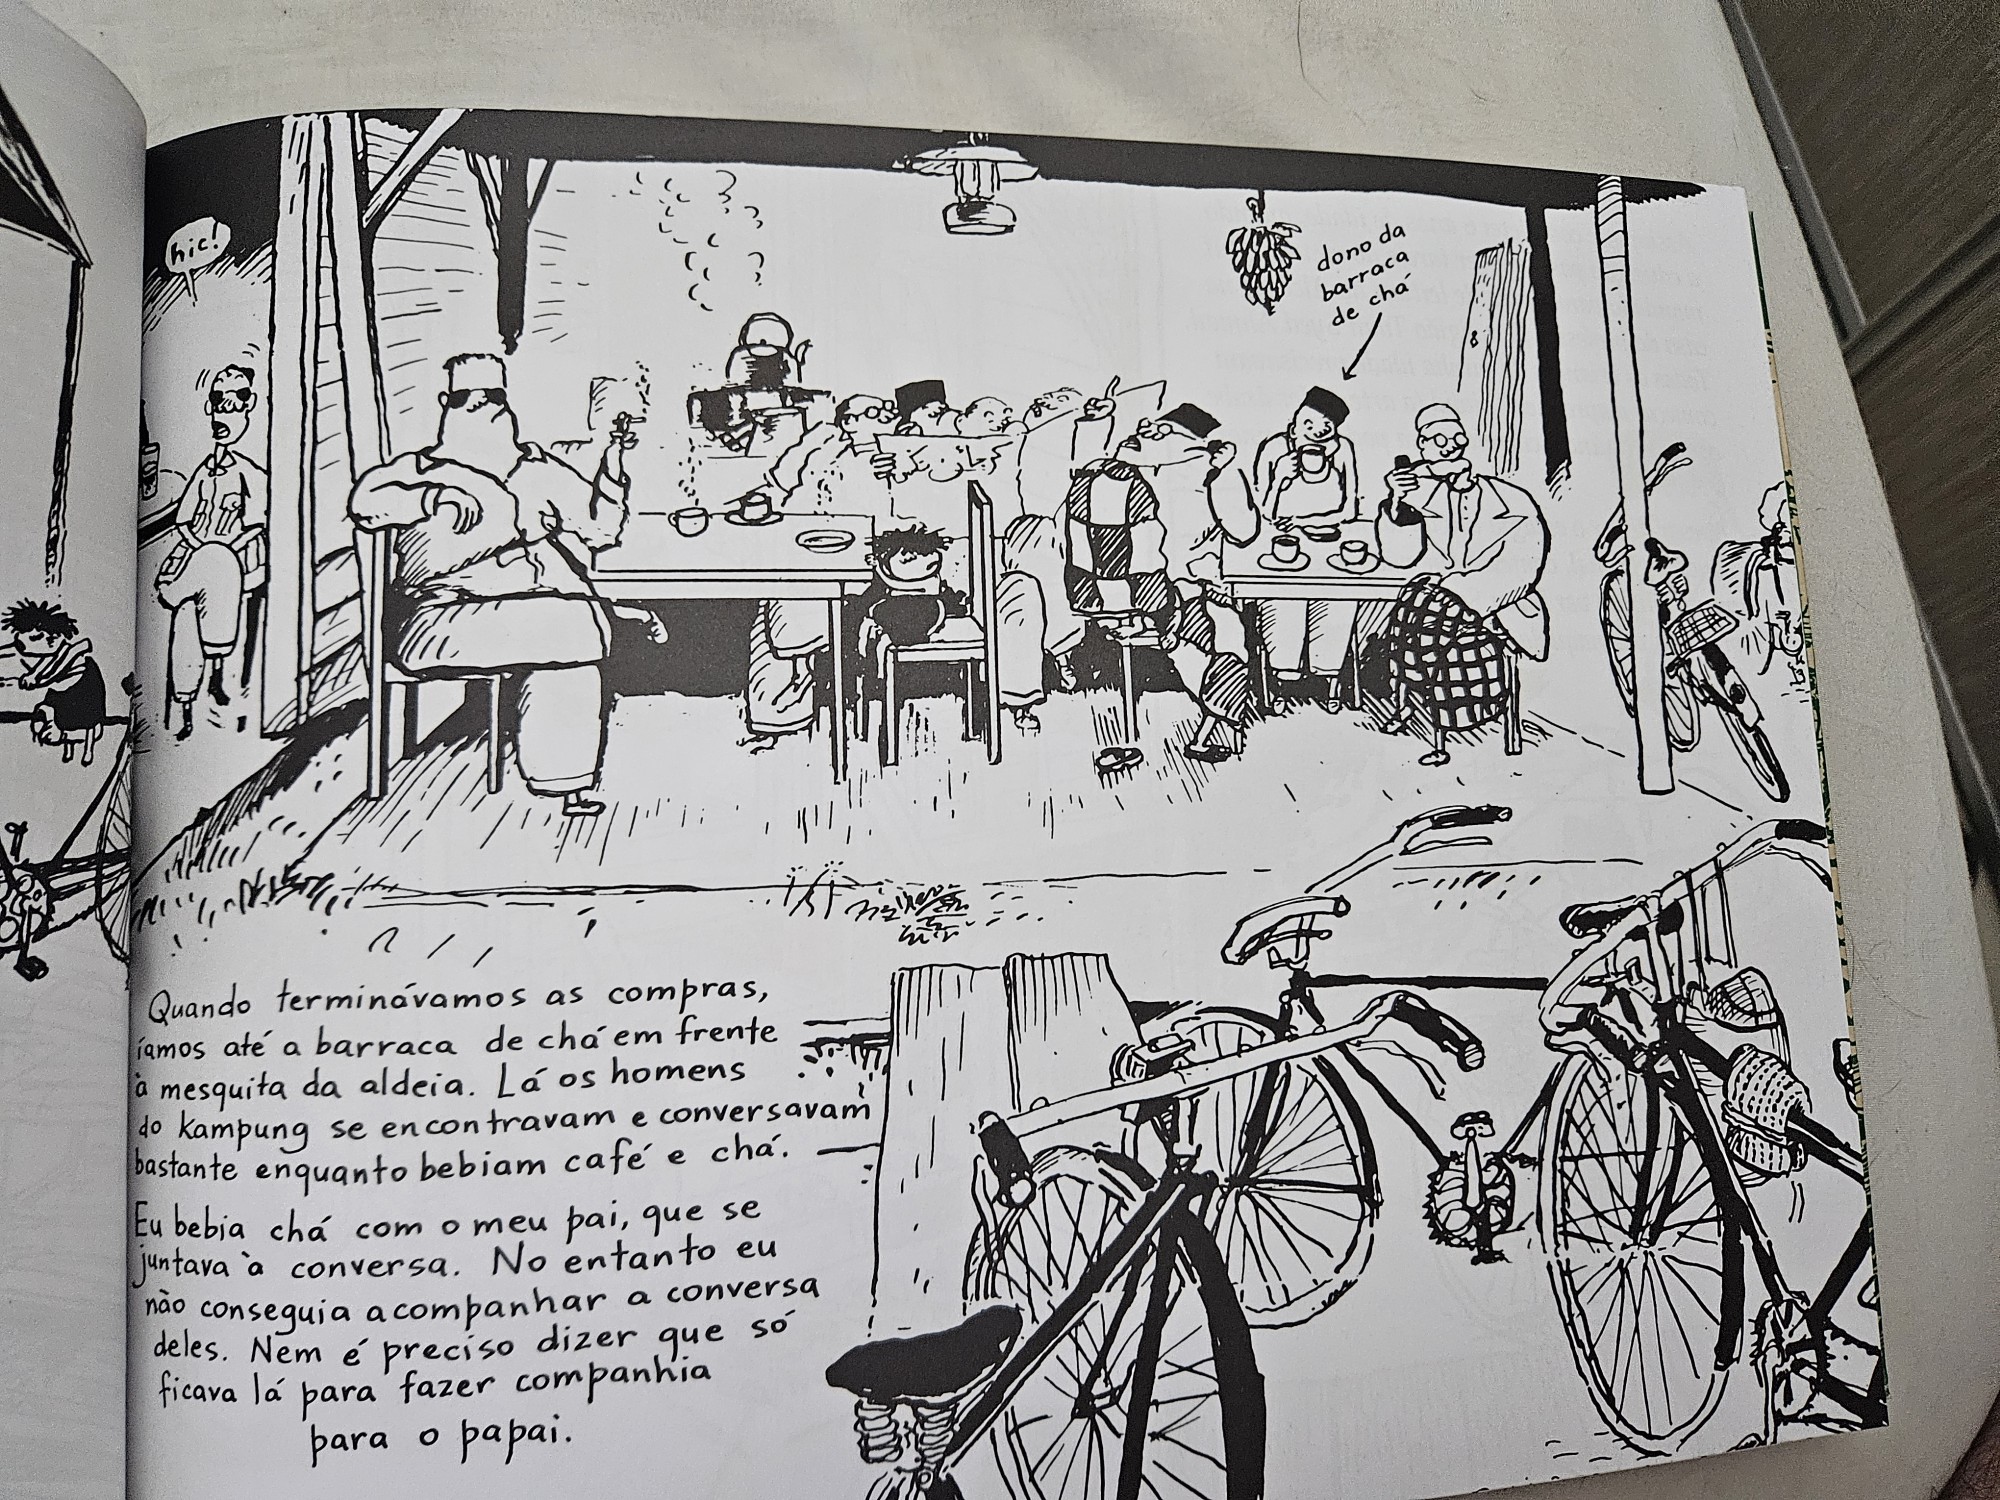 hic!
dono da
barraca
de chá
Quando terminávamos as compras,
íamos até a barraca de chá em frente
à mesquita da aldeia. Lá os homens
do kampung se encontravam e conversavam
bastante enquanto bebiam café e chá.
Eu bebia chá com o meu pai, que se
juntava à conversa. No entanto eu
não conseguia acompanhar a conversa
deles. Nem é preciso dizer que só
ficava lá para fazer companhia
para o papai.